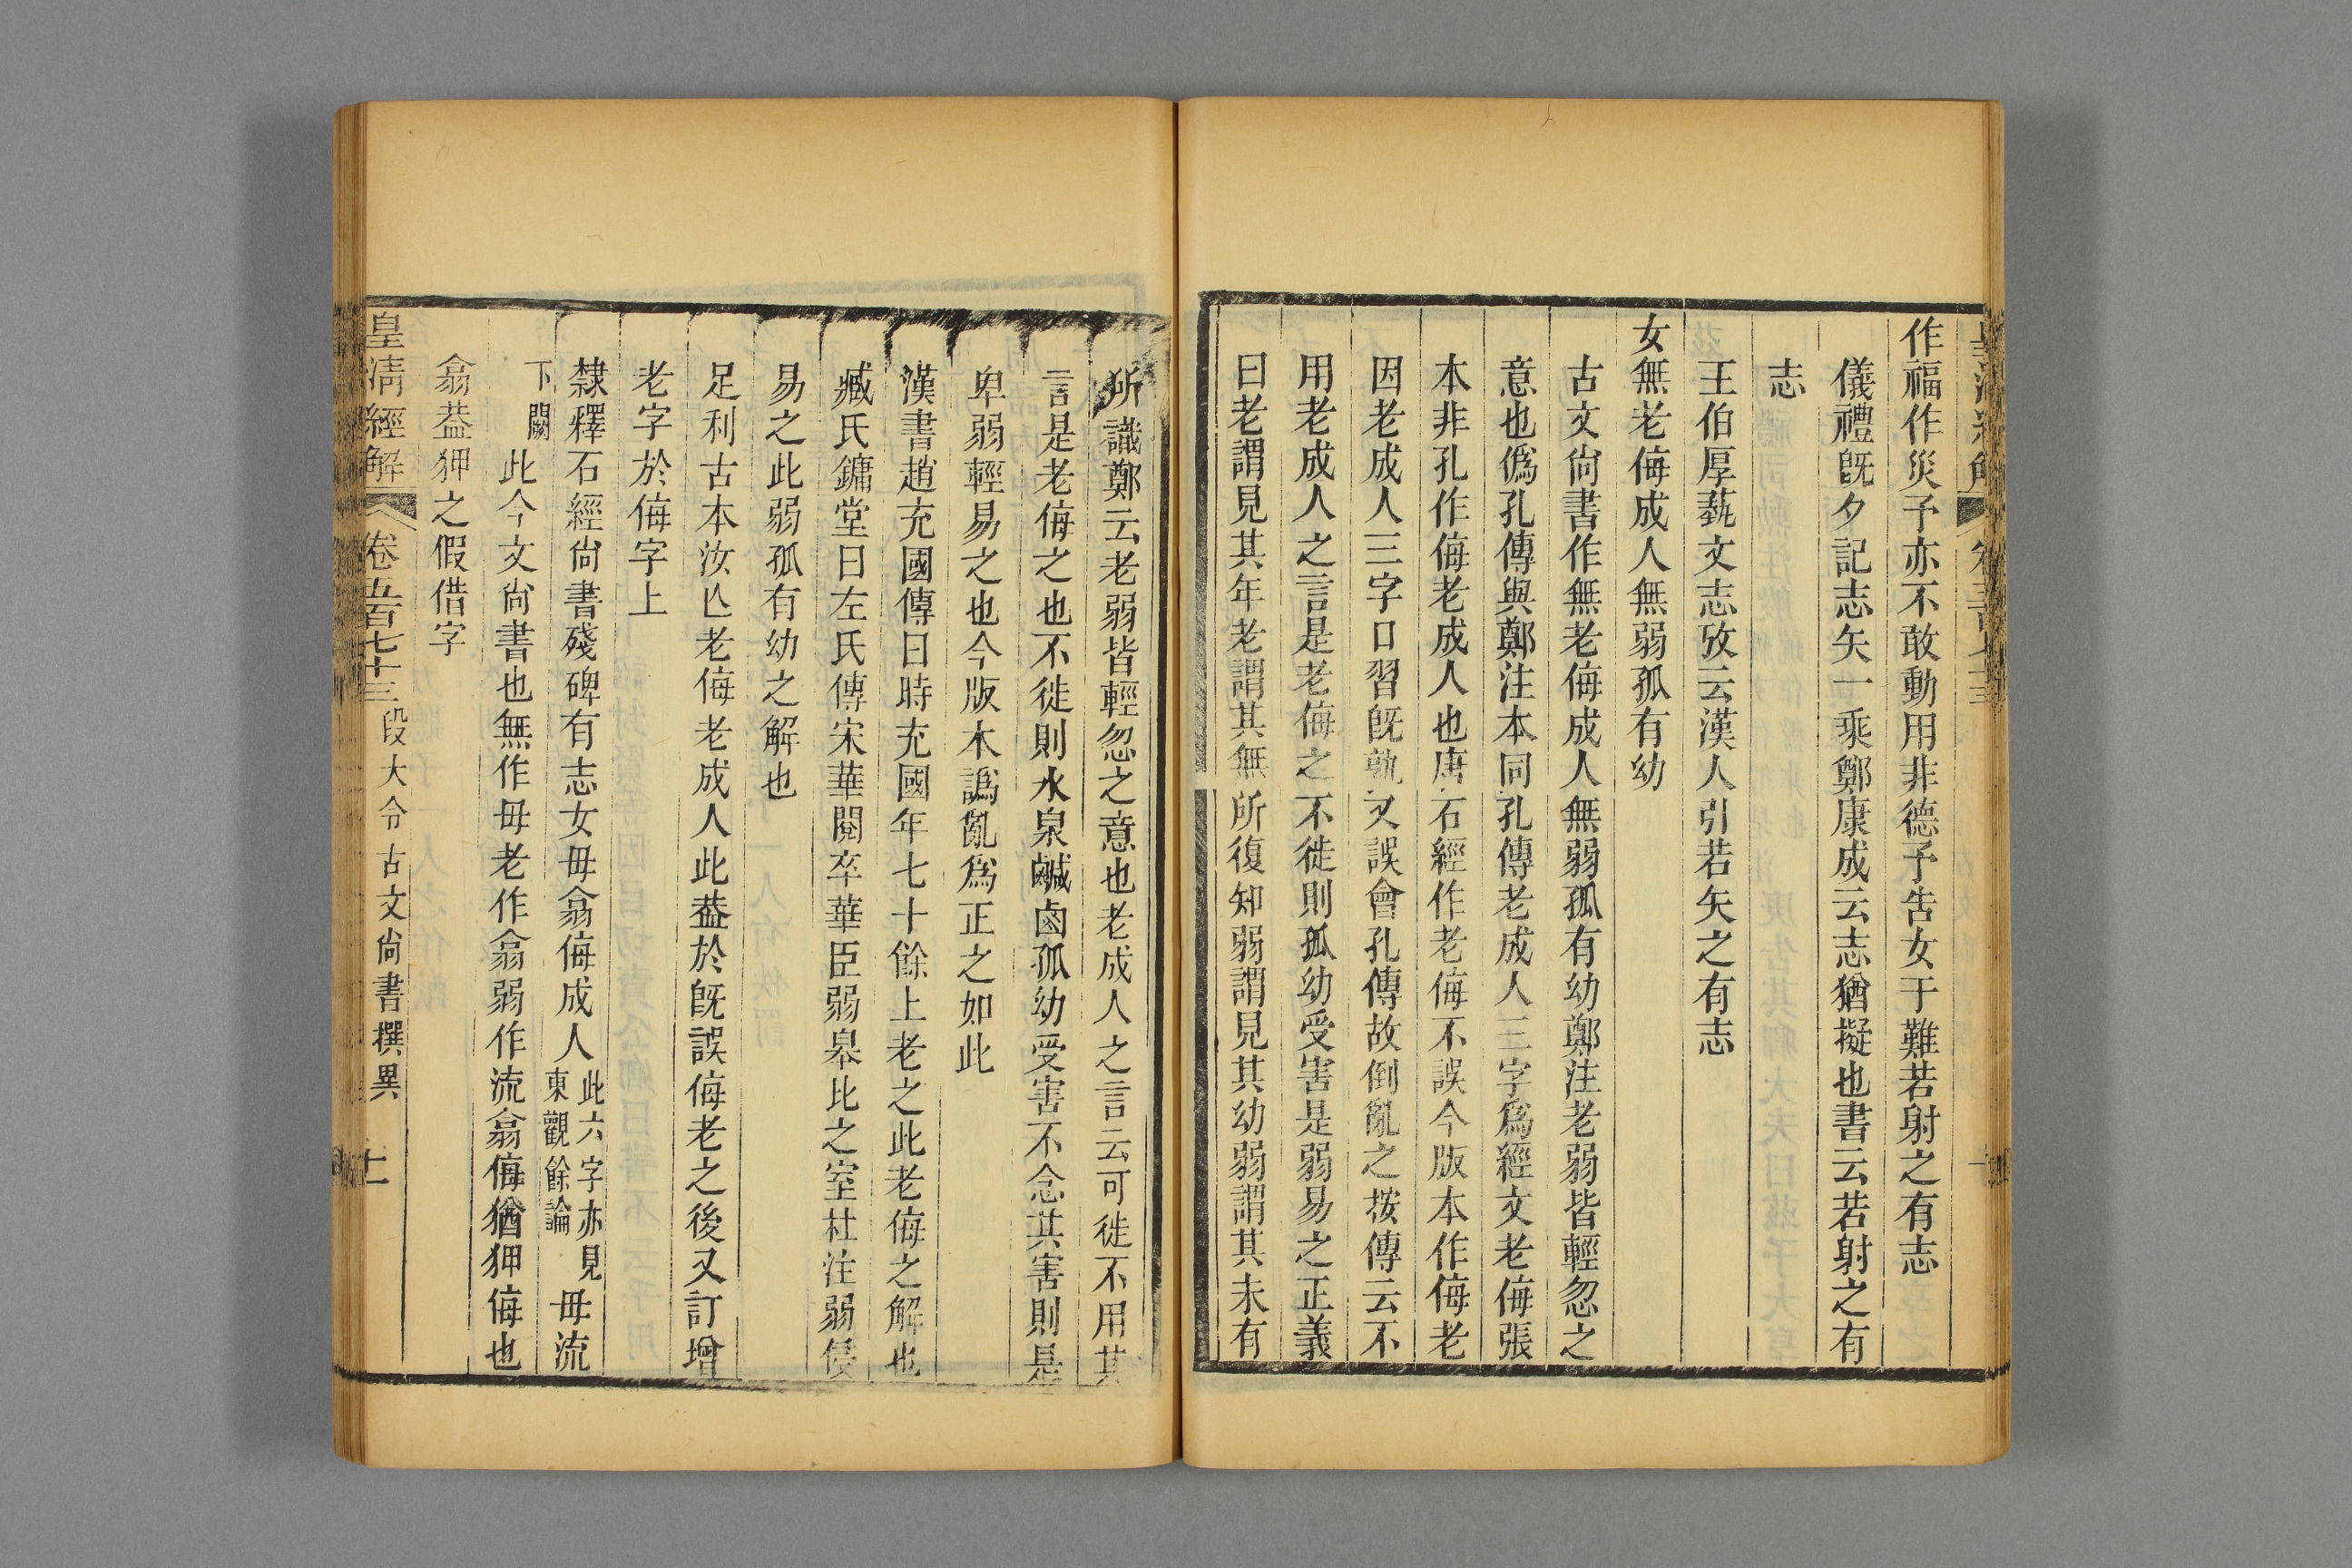 作福作災予亦不敢動用非德予告女于難若射之有志
儀禮旣夕記志矢一乘鄭康成云志猶擬也書云若射之有
志
王伯厚蓺文志攷云漢人引若矢之有志
女無老侮成人無弱孤有幼
古文尙書作無老侮成人無弱孤有幼鄭注老弱皆輕忽之
意也僞孔傳與鄭注本同孔傳老成人三字爲經文老侮張
本非孔作侮老成人也唐石經作老侮不誤今版本作侮老
因老成人三字口習旣孰又誤會孔傳故倒亂之按傳云不
用老成人之言是老侮之不徙則孤幼受害是弱易之正義
曰老謂見其年老謂其無所復知弱謂見其幼弱謂其未有
所識鄭云老弱皆輕忽之意也老成人之言云可徙不用其
言是老侮之也不徙則水泉鹹鹵孤幼受害不念其害則是
卑弱輕易之也今版本譌亂爲正之如此
漢書趙充國傳曰時充國年七十餘上老之此老侮之解也
臧氏鏞堂曰左氏傳宋華閱卒華臣弱皋比之室杜注弱侵
易之此弱孤有幼之解也
足利古本汝亾老侮老成人此葢於旣誤侮老之後又訂增
老字於侮字上
隸釋石經尙書殘碑有志女毋翕侮成人此六字亦見東觀餘論毋流
下闕此今文尙書也無作毋老作翕弱作流翕侮猶狎侮也
翕葢狎之假借字
皇淸經解 卷五百七十三 段大令古文尙書撰異 十一